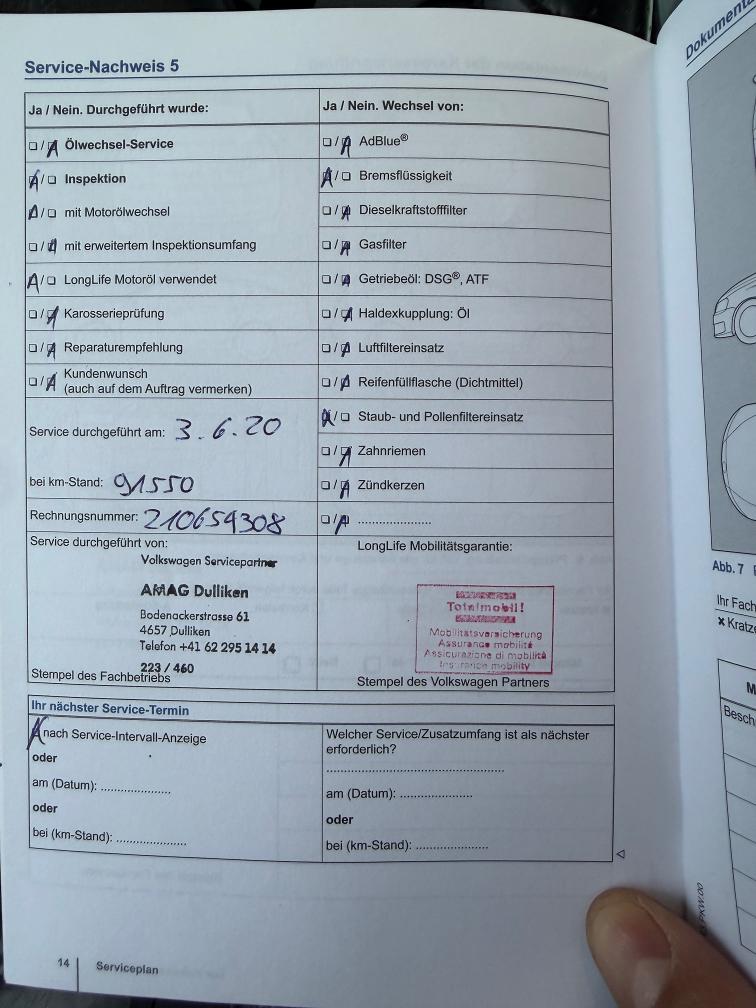 Service-Nachweis 5
Ja / Nein. Durchgeführt wurde:
Ölwechsel-Service
Inspektion
mit Motorölwechsel
mit erweitertem Inspektionsumfang
LongLife Motoröl verwendet
Karosserieprüfung
Reparaturempfehlung
Kundenwunsch
(auch auf dem Auftrag vermerken)
Service durchgeführt am: 3.6.20
bei km-Stand: 91550
Rechnungsnummer: 210654308
Service durchgeführt von:
Volkswagen Servicepartner
AMAG Dulliken
Bodenackerstrasse 61
4657 Dulliken
Telefon +41 62 295 14 14
223 / 460
Stempel des Fachbetriebs
Ja / Nein. Wechsel von:
AdBlue®
Bremsflüssigkeit
Dieselkraftstofffilter
Gasfilter
Getriebeöl: DSG®, ATF
Haldexkupplung: Öl
Luftfiltereinsatz
Reifenfüllflasche (Dichtmittel)
Staub- und Pollenfiltereinsatz
Zahnriemen
Zündkerzen
......................
LongLife Mobilitätsgarantie:
Totalmobil!
Mobilitätsversicherung
Assurance mobilité
Assicurazione di mobilità
Insurance mobility
Stempel des Volkswagen Partners
Ihr nächster Service-Termin
nach Service-Intervall-Anzeige
oder
am (Datum): .....................
oder
bei (km-Stand): .....................
Welcher Service/Zusatzumfang ist als nächster
erforderlich?
.....................................................
am (Datum): .....................
oder
bei (km-Stand): .....................
14
Serviceplan
Abb. 7
Ihr Fach
× Kratze